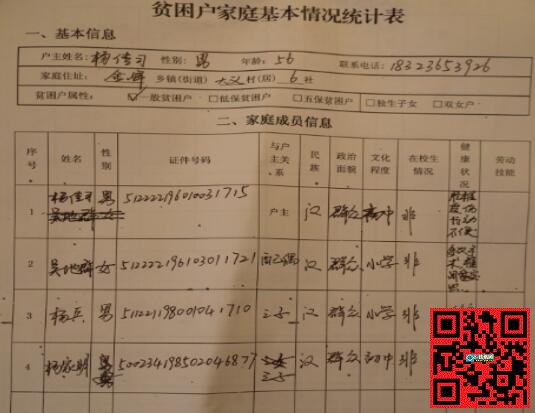 贫困户家庭基本情况统计表
一、基本信息
户主姓名: 杨佳司 性别: 男 年龄: 56 联系电话: 18323653926
家庭住址: 金峰 乡镇(街道) 大义 村(居) 6 社
贫困户属性: ☑一般贫困户 □低保贫困户 □五保贫困户 □独生子女 □双女户
二、家庭成员信息
序号 姓名 性别 证件号码 与户主关系 民族 政治面貌 文化程度 在校生情况 健康状况 劳动技能
1 杨佳司 男 512222196010031715 户主 汉 群众 高中 非
2 吴地群 女 512222196103011721 配偶 汉 群众 小学 非
3 杨兵 男 511221198001041710 之子 汉 群众 小学 非
4 杨家明 男 500234198502046877 之子 汉 群众 初中 非